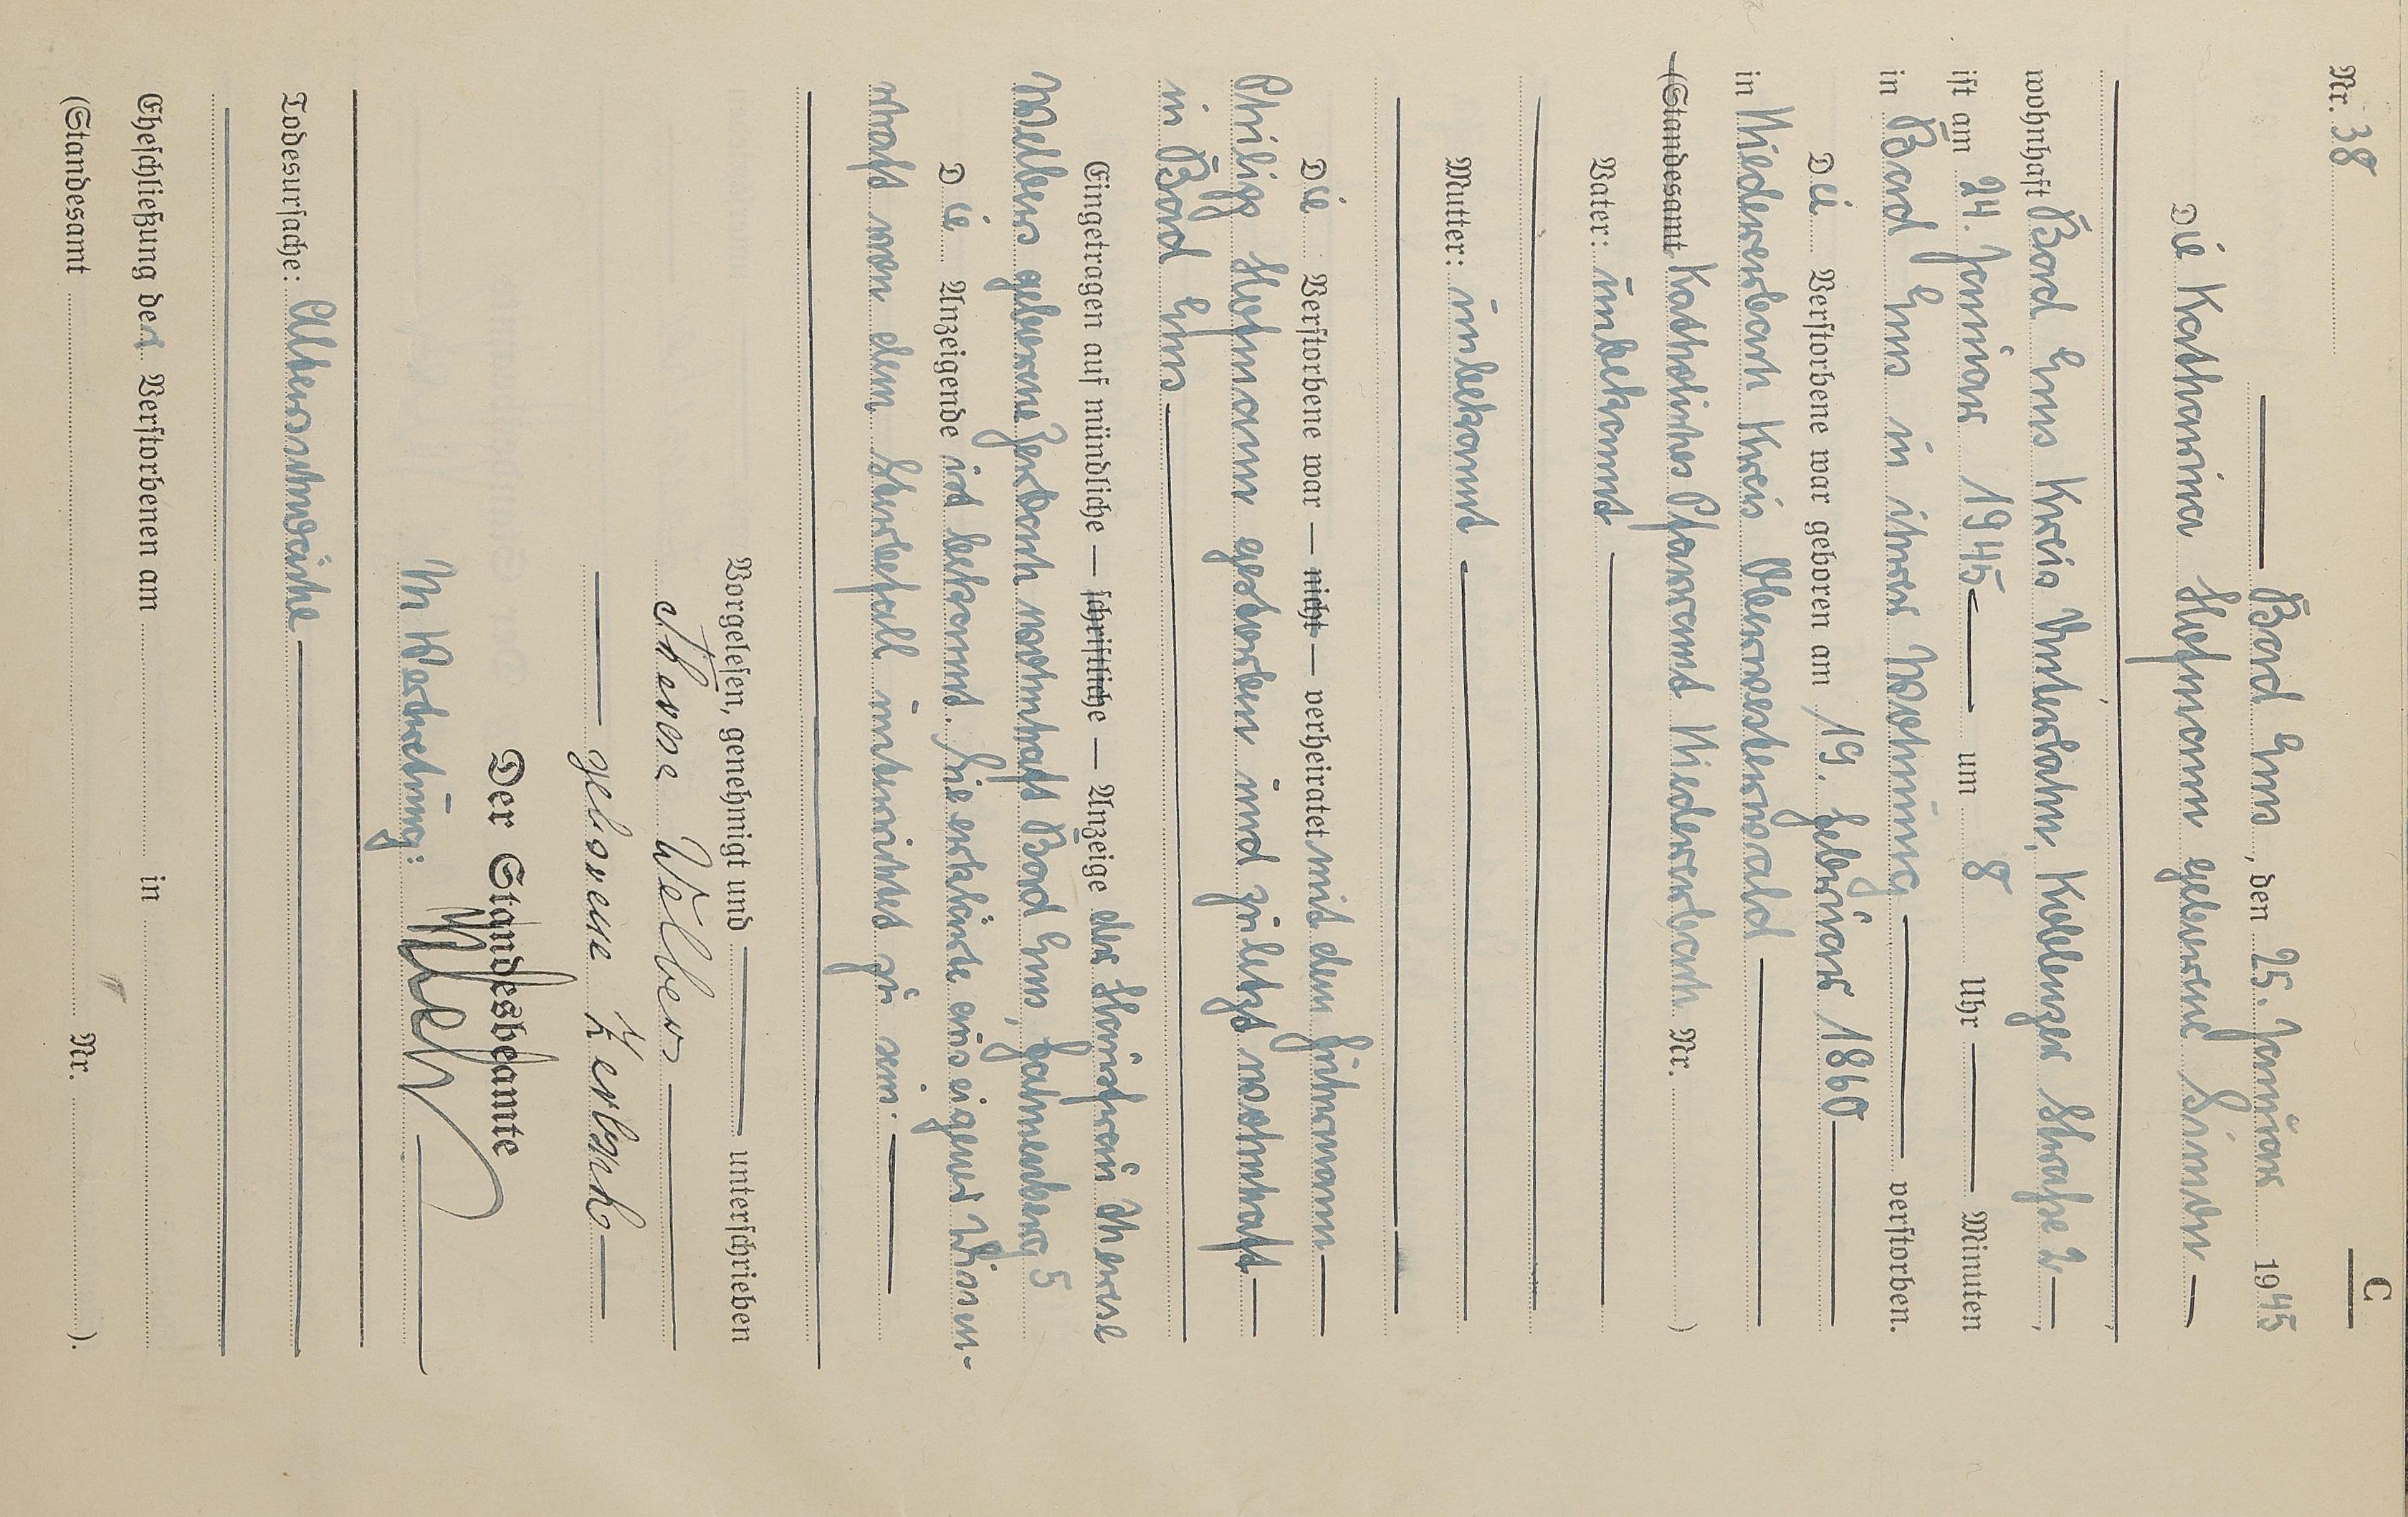 C
Nr. 38
Bad Ems, den 25. Januar 1945
Die Katharina Hofmann geborene Simon
wohnhaft Bad Ems Kreis Unterlahn, Koblenzer Straße 2
ist am 24. Januar 1945 um 8 Uhr Minuten
in Bad Ems in ihrer Wohnung verstorben.
Die Verstorbene war geboren am 19. Februar 1860
in Niedererbach Kreis Oberwesterwald
(Standesamt Katholisches Pfarramt Niedererbach Nr. )
Vater: unbekannt
Mutter: unbekannt
Die Verstorbene war — nicht — verheiratet mit dem Fuhrmann
Philipp Hofmann gestorben und zuletzt wohnhaft
in Bad Ems
Eingetragen auf mündliche — schriftliche — Anzeige der Hausfrau Therese
Welbers geborene Zerbach wohnhaft Bad Ems, Hahnenberg 5
Die Anzeigende ist bekannt. Sie erklärte aus eigener Wissen-
schaft von dem Sterbefall unterrichtet zu sein.
Vorgelesen, genehmigt und unterschrieben
Therese Welbers
geborene Zerbach
Der Standesbeamte
In Vertretung:
Todesursache: Altersschwäche
Eheschließung der Verstorbenen am in
(Standesamt Nr. ).